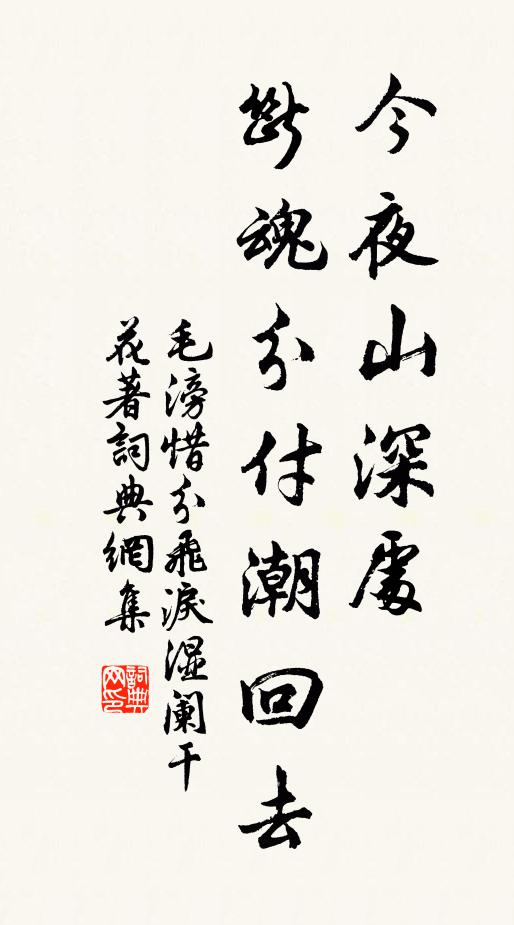 今夜山深處
斷魂分付潮回去
毛滂惜分飛淚濕闌干
花著詞典網集
詞典
网印